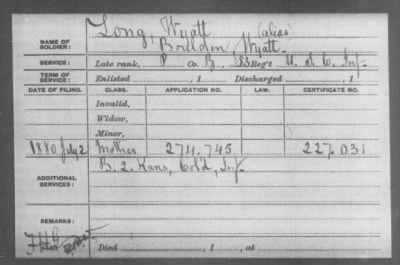 Long, Wyatt (alias)
NAME OF SOLDIER: Boulden, Wyatt
SERVICE: Late rank, P Co. B, 83 Reg't U. S. C. Inf.
TERM OF SERVICE: Enlisted , 1 Discharged , 1
DATE OF FILING. CLASS. APPLICATION NO. LAW. CERTIFICATE NO.
Invalid,
Widow,
Minor,
1880 July 2 Mother 274.745 227.031
ADDITIONAL SERVICES: B. 2. Kans, Col'd, Inf.
REMARKS:
Died , 1 , at